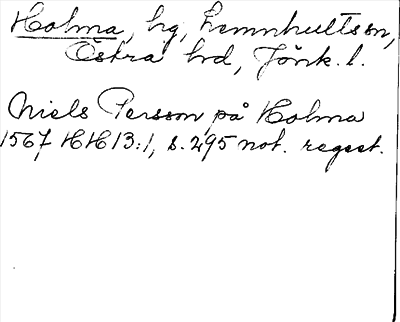 Holma, hg, Lemnhults sn,
Östra hrd, Jönk. l.
Niels Persson på Holma
1567 HH 13:1, s. 295 not. regest.